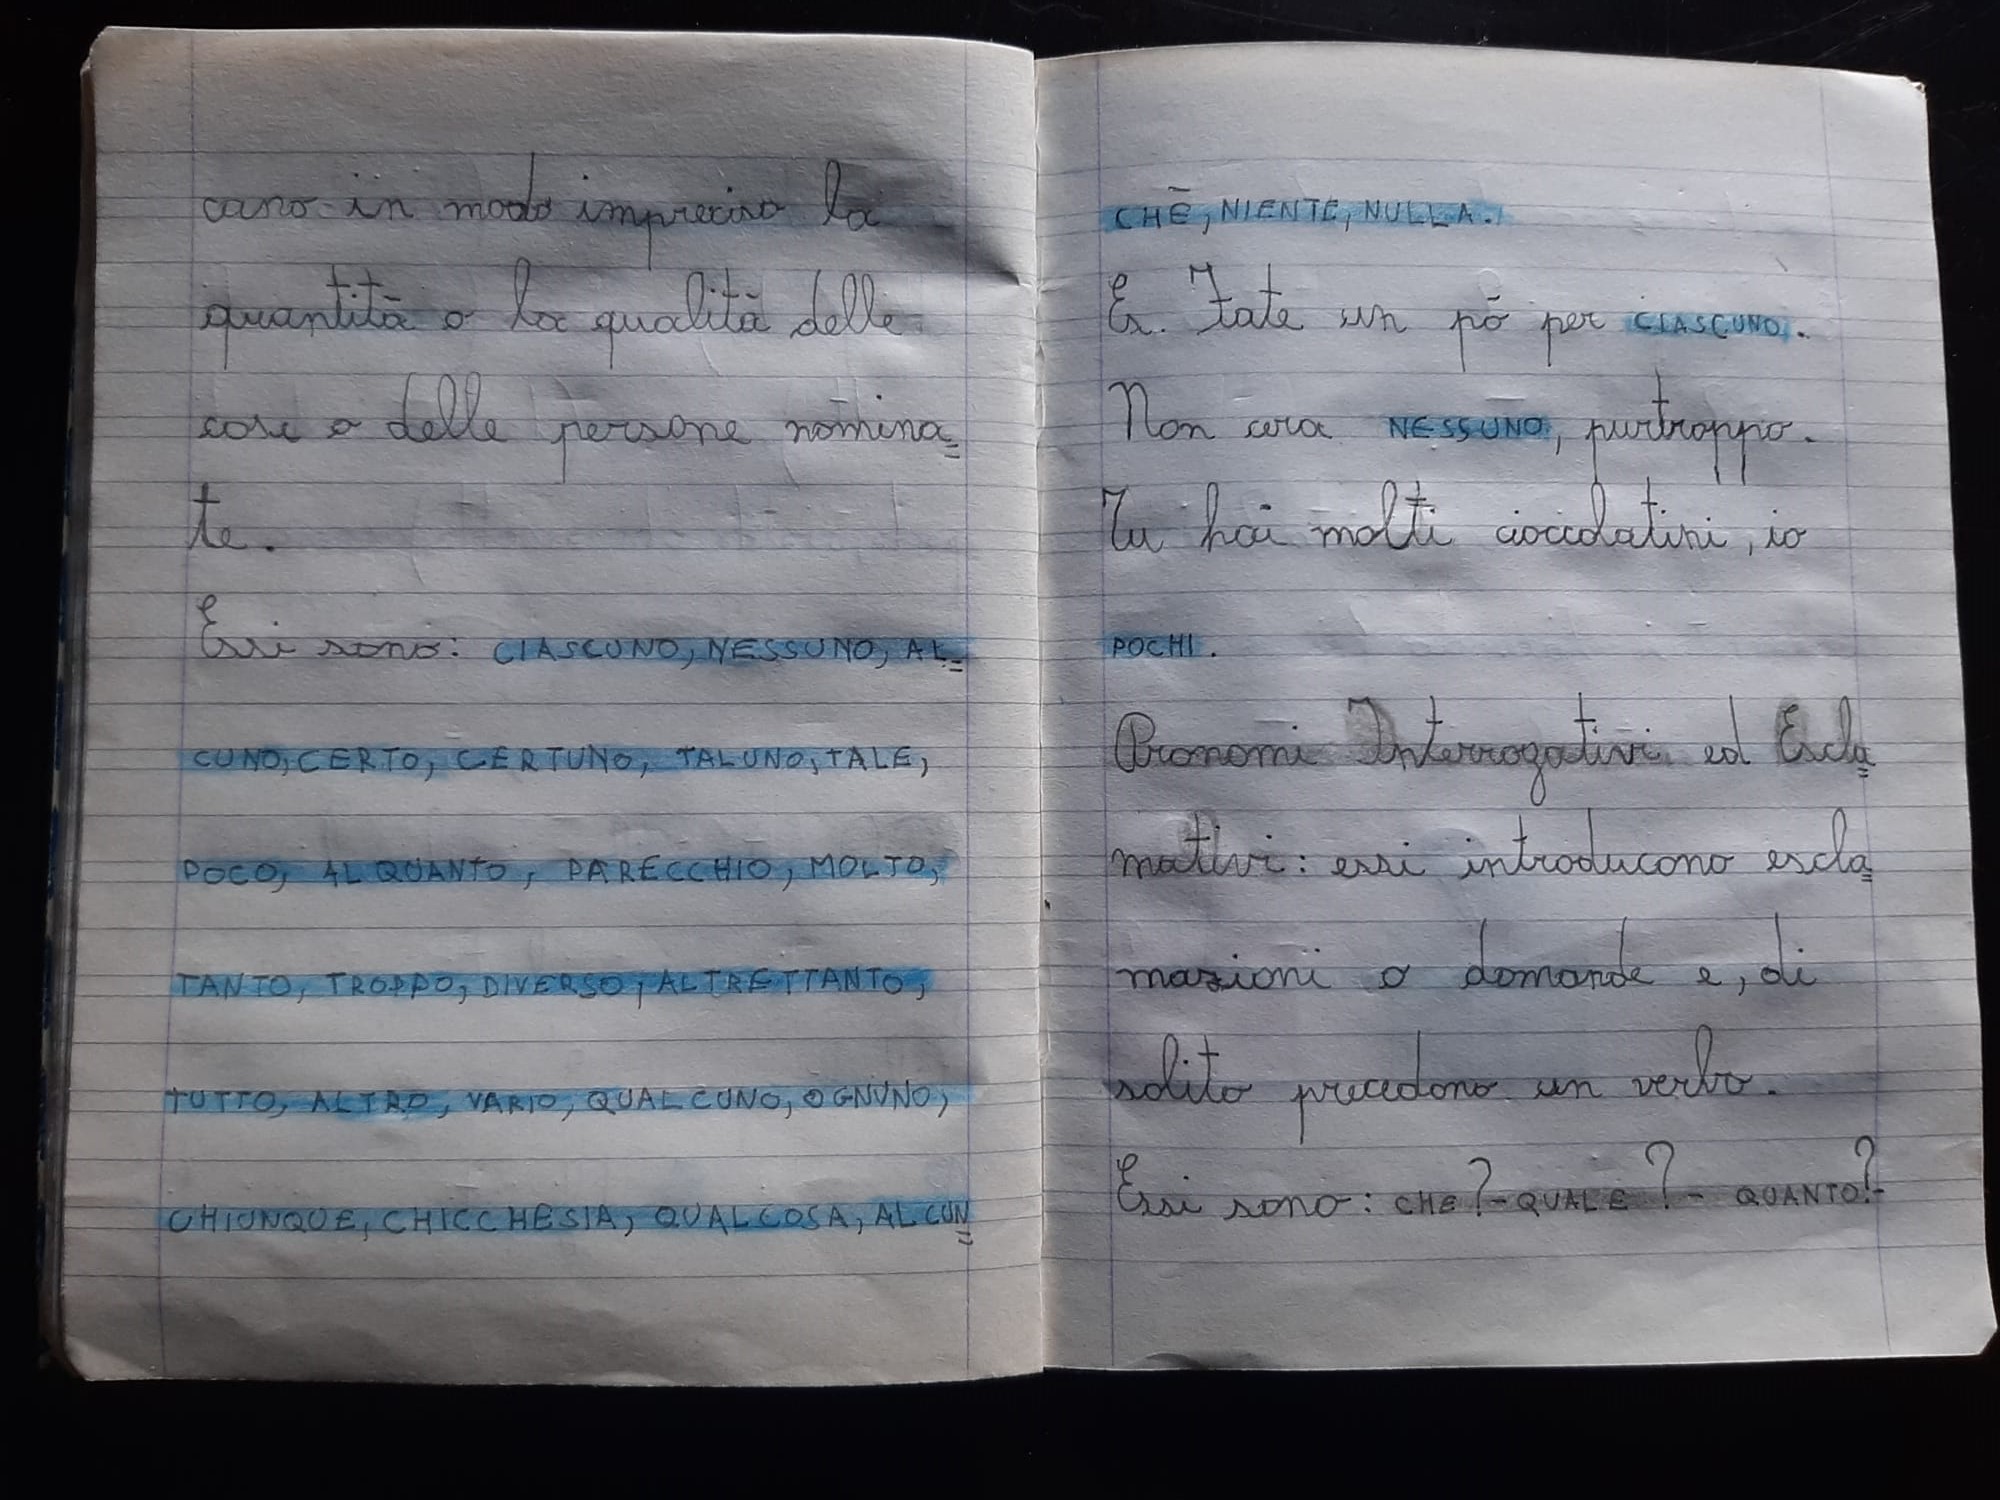 cano in modo impreciso la
quantità o la qualità delle
cose o delle persone nomina=
te.
Essi sono: CIASCUNO, NESSUNO, AL=
CUNO, CERTO, CERTUNO, TALUNO, TALE,
POCO, ALQUANTO, PARECCHIO, MOLTO,
TANTO, TROPPO, DIVERSO, ALTRETTANTO,
TUTTO, ALTRO, VARIO, QUALCUNO, OGNUNO,
CHIUNQUE, CHICCHESIA, QUALCOSA, ALCUN=
CHÈ, NIENTE, NULLA.
Es. Fate un pò per CIASCUNO.
Non cera NESSUNO, purtroppo.
Tu hai molti cioccolatini, io
POCHI.
Pronomi Interrogativi ed Escla=
mativi: essi introducono escla=
mazioni o domande e, di
solito precedono un verbo.
Essi sono: CHE?-QUALE?- QUANTO?-